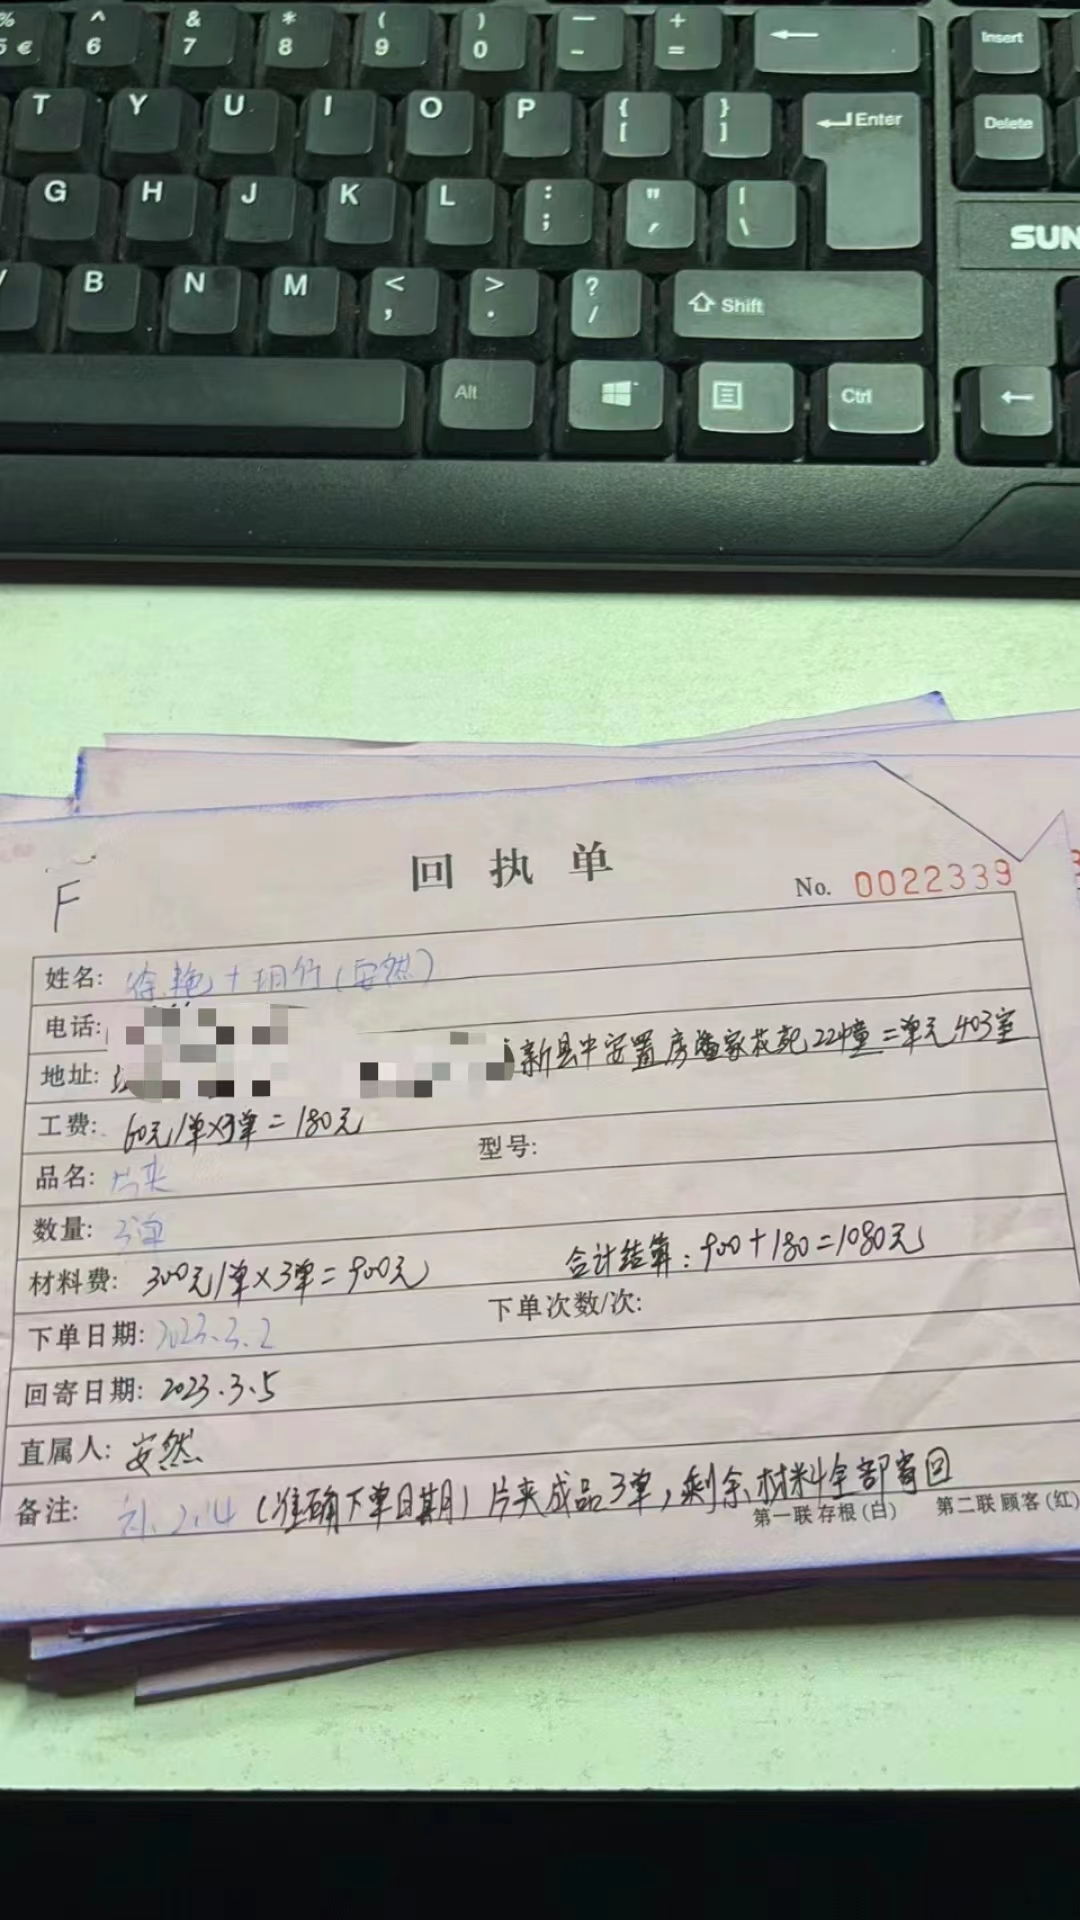 % ^ & * ( ) — +
5 € 6 7 8 9 0 - = Insert
T Y U I O P { [ } ] Enter Delete
G H J K L : ; " ' | \
SUN
B N M < , > . ? / Shift
Alt Ctrl
回执单
No. 0022339
F
姓名: 徐艳+玥竹(安然)
电话:
地址: 新县中安置房 家花苑22幢二单元403室
工费: 60元/单×3单=180元
型号:
品名: 片夹
数量: 3单
材料费: 300元/单×3单=900元 合计结算:900+180=1080元
下单日期: 2023.3.2 下单次数/次:
回寄日期: 2023.3.5
直属人: 安然
备注: 补2.14(准确下单日期)片夹成品3单,剩余材料全部寄回
第一联存根(白) 第二联顾客(红)